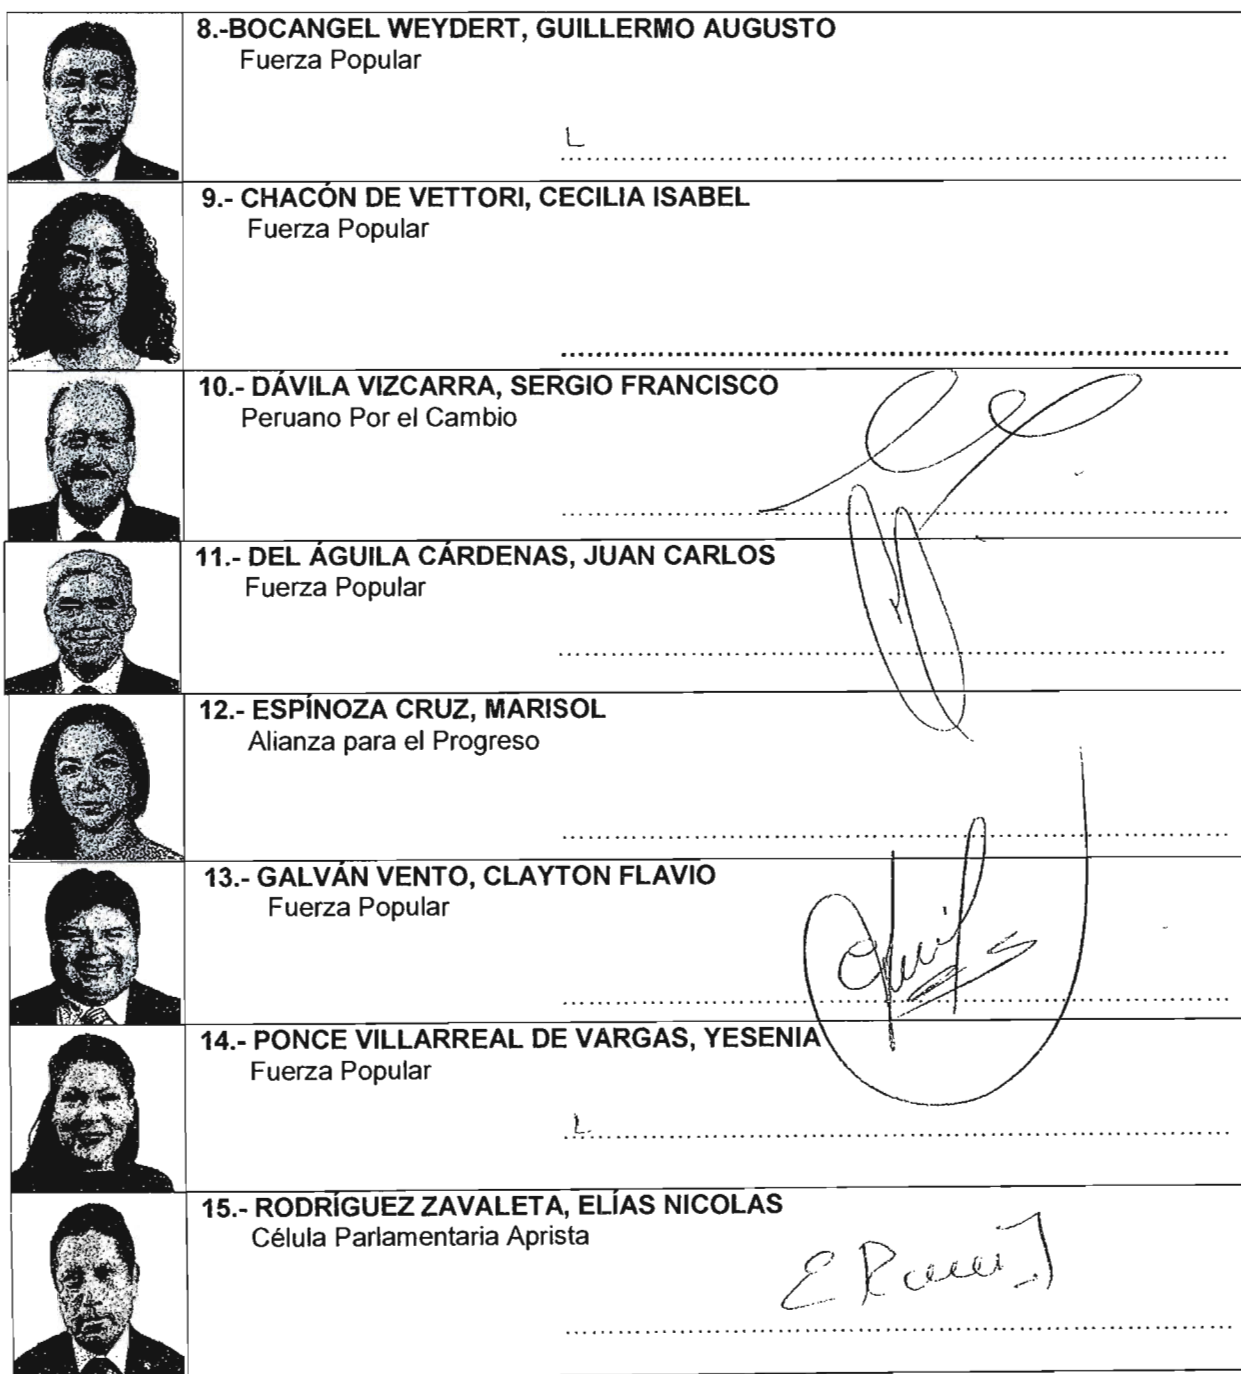 8.-BOCANGEL WEYDERT, GUILLERMO AUGUSTO
Fuerza Popular
L
9.- CHACÓN DE VETTORI, CECILIA ISABEL
Fuerza Popular
10.- DÁVILA VIZCARRA, SERGIO FRANCISCO
Peruano Por el Cambio
11.- DEL ÁGUILA CÁRDENAS, JUAN CARLOS
Fuerza Popular
12.- ESPÍNOZA CRUZ, MARISOL
Alianza para el Progreso
13.- GALVÁN VENTO, CLAYTON FLAVIO
Fuerza Popular
14.- PONCE VILLARREAL DE VARGAS, YESENIA
Fuerza Popular
L
15.- RODRÍGUEZ ZAVALETA, ELÍAS NICOLAS
Célula Parlamentaria Aprista